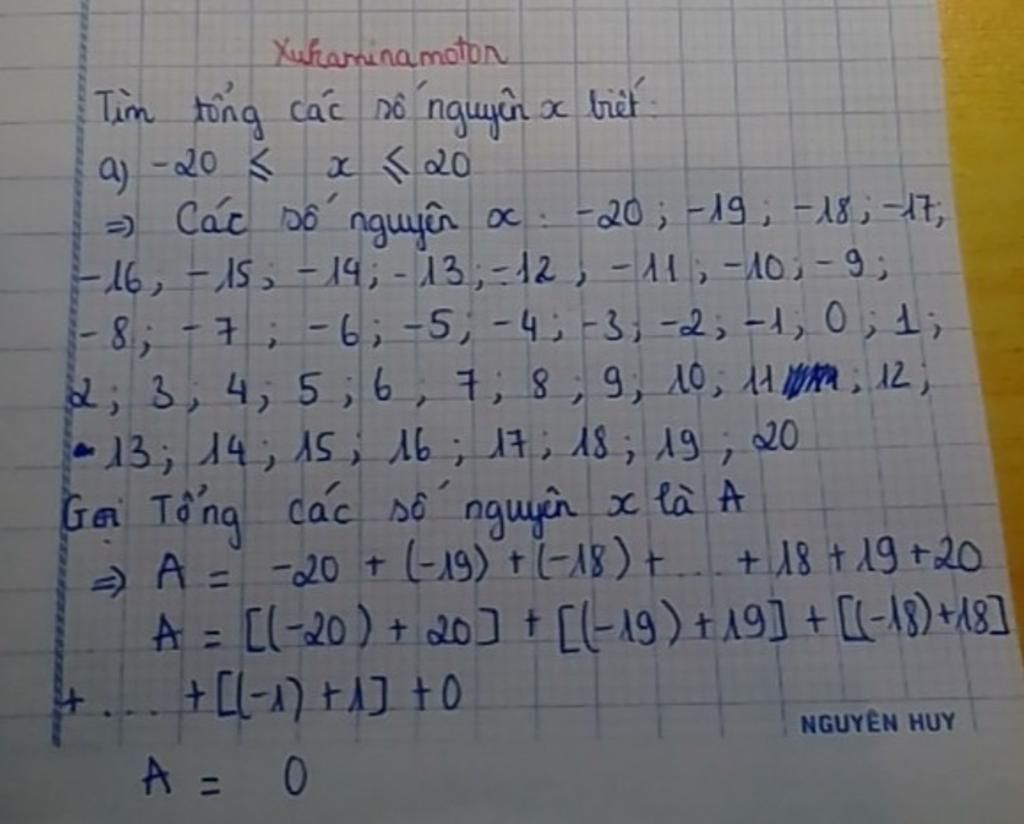 Xukaminamoton
Tìm tổng các số nguyên x biết:
a) -20 ⩽ x ⩽ 20
=> Các số nguyên x : -20 ; -19 ; -18 ; -17;
-16; -15; -14; -13; -12 ; -11; -10; -9;
-8; -7 ; -6; -5; -4; -3; -2; -1; 0 ; 1;
2; 3; 4; 5; 6, 7; 8; 9; 10; 11 ; 12;
- 13; 14; 15; 16; 17; 18; 19 ; 20
Gọi Tổng các số nguyên x là A
=> A = -20 + (-19) + (-18) + ... + 18 + 19 + 20
A = [(-20) + 20] + [(-19) + 19] + [(-18) + 18]
+ .... + [(-1) + 1] + 0
NGUYÊN HUY
A = 0